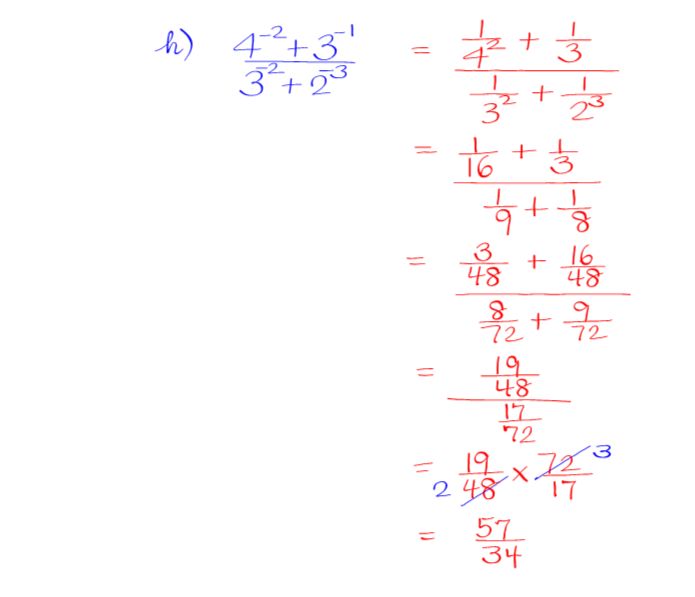 h) (4⁻² + 3⁻¹)/(3⁻² + 2⁻³) = (1/4² + 1/3)/(1/3² + 1/2³)
= (1/16 + 1/3)/(1/9 + 1/8)
= (3/48 + 16/48)/(8/72 + 9/72)
= (19/48)/(17/72)
= 19/48 × 72/17 2 3
= 57/34